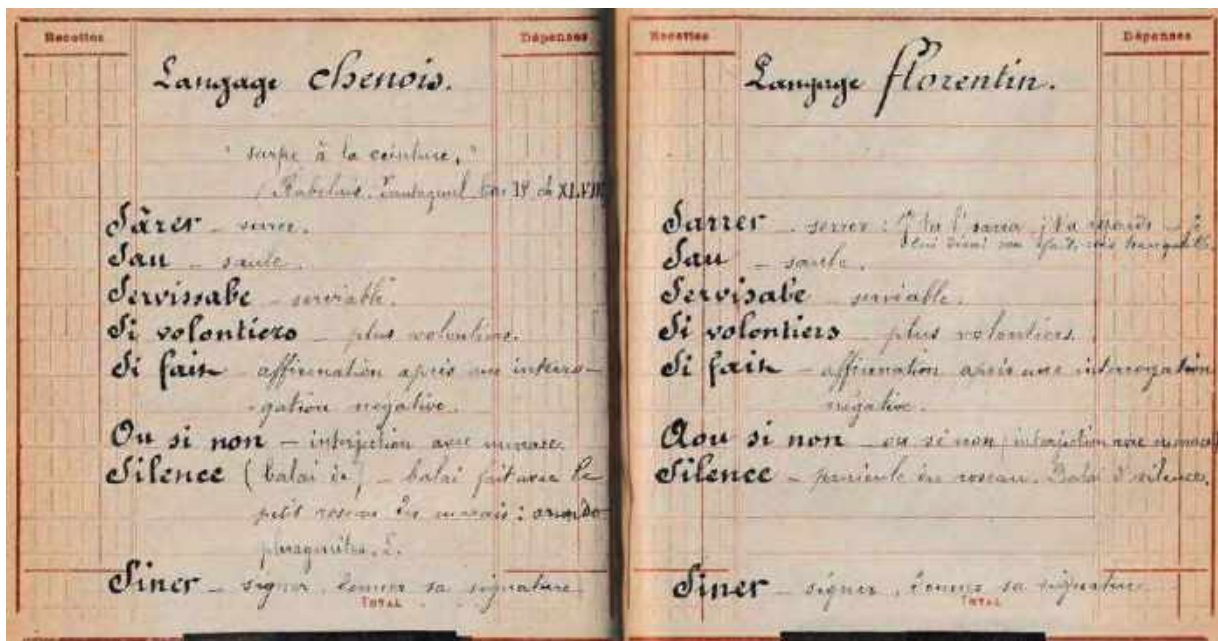 Recettes
Dépenses
Langage chenois.
" sarpe à la ceinture. "
(Rabelais, Pantagruel Liv. IV ch XLVIII
Sârer - serrer.
Sau - saule.
Servissabe - serviable.
Si volontiers - plus volontiers.
Si fait - affirmation après une interro-
-gation négative.
Ou si non - interjection avec menace.
Silence (balai de) - balai fait avec le
petit roseau des marais : arundo
phragmites. L.
Siner - signer, donner sa signature
TOTAL
Recettes
Dépenses
Langage florentin.
Sarrer - serrer :
Sau - saule.
Servisabe serviable.
Si volontiers - plus volontiers.
Si fait - affirmation après une interrogation
négative.
Aou si non - ou si non (interjection avec menace)
Silence - panicule du roseau. Balai d'silence.
Siner - signer, donner sa signature
TOTAL